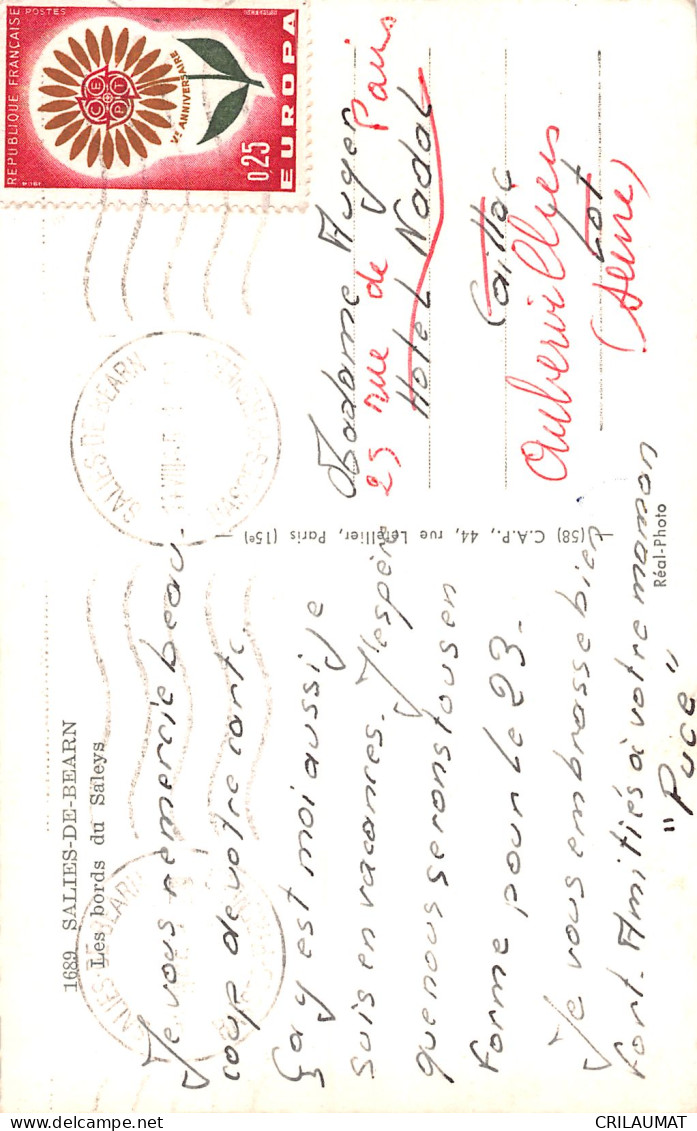 1689 SALIES-DE-BEARN
Les bords du Saleys
Je vous remercie beau-
coup de votre carte
Ça y est moi aussi je
suis en vacances. J'espère
que nous serons tous en
forme pour le 23.
Je vous embrasse bien
fort. Amitiés à votre maman
"Puce"
(58) C.A.P., 44, rue Letellier, Paris (15e)
Réal-Photo
REPUBLIQUE FRANÇAISE
POSTES
CEPT
Ve ANNIVERSAIRE
0,25
EUROPA
SALIES DE BEARN
SALIES DE BEARN
Madame Auger
23 rue de Paris
Hotel Nadal
Caillac
Aubervilliers
Lot
(Seine)
CRILAUMAT